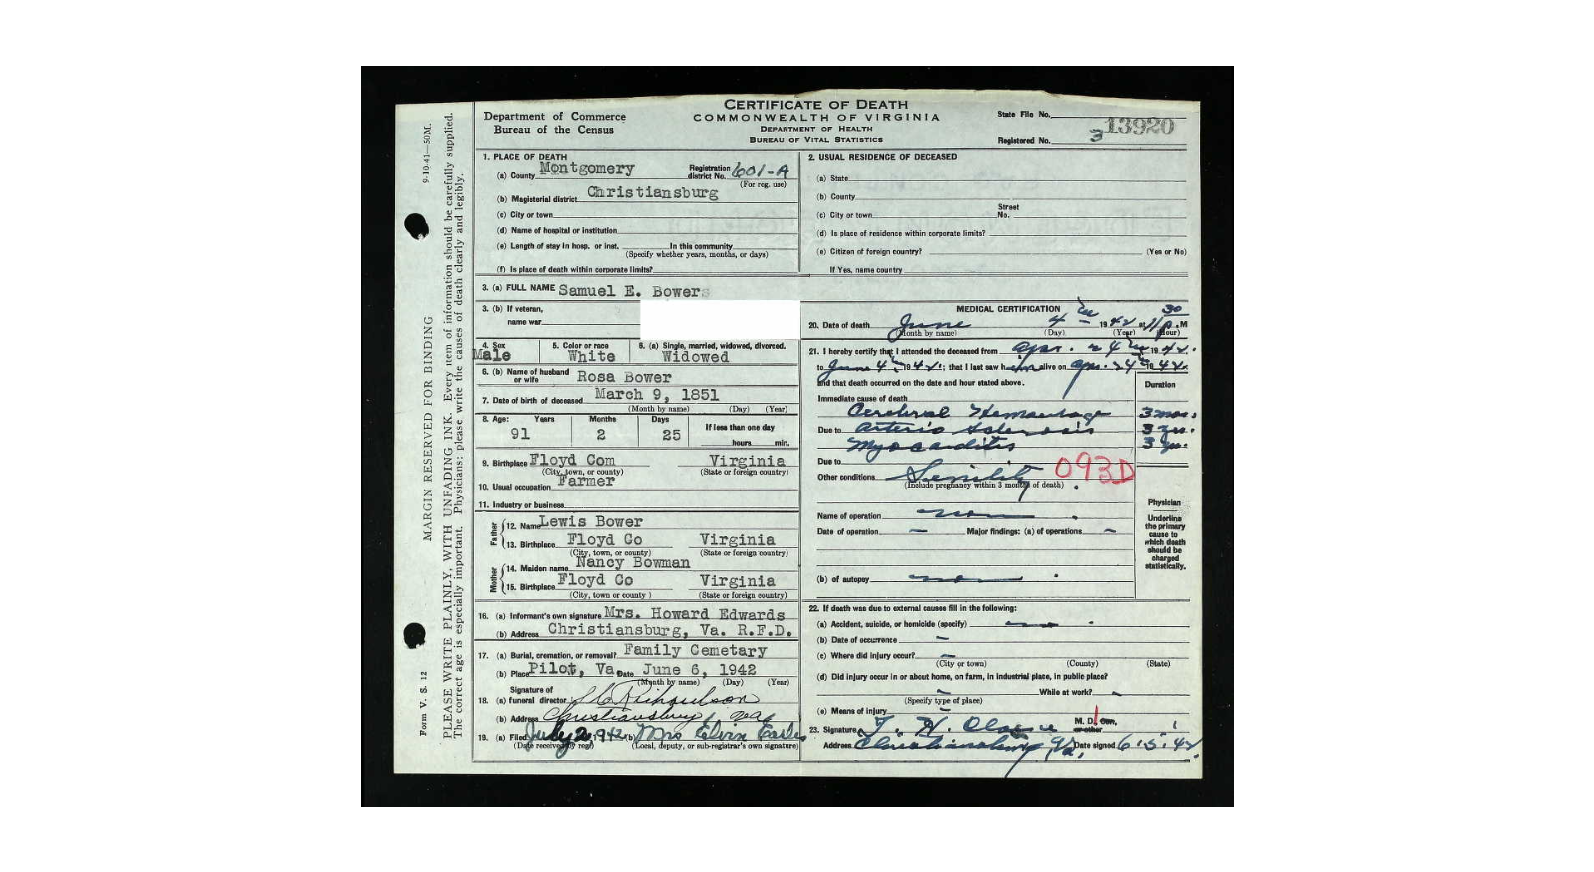 CERTIFICATE OF DEATH
COMMONWEALTH OF VIRGINIA
DEPARTMENT OF HEALTH
BUREAU OF VITAL STATISTICS
Department of Commerce
Bureau of the Census
State File No. 13920
Registered No. 3
9-10-41—50M.
MARGIN RESERVED FOR BINDING
Form V. S. 12
PLEASE WRITE PLAINLY, WITH UNFADING INK. Every item of information should be carefully supplied.
The correct age is especially important. Physicians: please write the causes of death clearly and legibly.
1. PLACE OF DEATH
(a) County Montgomery Registration district No. 601-A
(For reg. use)
(b) Magisterial district Christiansburg
(c) City or town
(d) Name of hospital or institution
(e) Length of stay in hosp. or inst. In this community
(Specify whether years, months, or days)
(f) Is place of death within corporate limits?
2. USUAL RESIDENCE OF DECEASED
(a) State
(b) County
(c) City or town Street No.
(d) Is place of residence within corporate limits?
(e) Citizen of foreign country? (Yes or No)
If Yes, name country
3. (a) FULL NAME Samuel E. Bowers
3. (b) If veteran,
name war
4. Sex Male
5. Color or race White
6. (a) Single, married, widowed, divorced. Widowed
6. (b) Name of husband or wife Rosa Bower
7. Date of birth of deceased March 9, 1851
(Month by name) (Day) (Year)
8. Age: Years Months Days If less than one day
91 2 25 hours min.
9. Birthplace Floyd Com Virginia
(City, town, or county) (State or foreign country)
10. Usual occupation Farmer
11. Industry or business
Father
12. Name Lewis Bower
13. Birthplace Floyd Co Virginia
(City, town, or county) (State or foreign country)
Mother
14. Maiden name Nancy Bowman
15. Birthplace Floyd Co Virginia
(City, town or county) (State or foreign country)
16. (a) Informant's own signature Mrs. Howard Edwards
(b) Address Christiansburg, Va. R.F.D.
17. (a) Burial, cremation, or removal? Family Cemetary
(b) Place Pilot, Va. Date June 6, 1942
(Month by name) (Day) (Year)
18. (a) Signature of funeral director Richardson
(b) Address Christiansburg Va
19. (a) Filed July 2, 1942 (b) Mrs Elvin Earles
(Date received by reg.) (Local, deputy, or sub-registrar's own signature)
MEDICAL CERTIFICATION
20. Date of death June 4 th 1942 at 11 30 P.M
(Month by name) (Day) (Year) (Hour)
21. I hereby certify that I attended the deceased from Apr. 24 th 1942.
to June 4 th 1942; that I last saw him alive on Apr. 24 th 1942.
and that death occurred on the date and hour stated above. Duration
Immediate cause of death
Cerebral Hemorrhage 3 mos.
Due to Arterio Sclerosis 3 yrs.
Myocarditis 3 yrs.
Due to
Other conditions Senility 093D
(Include pregnancy within 3 months of death)
Name of operation
Date of operation — Major findings: (a) of operations —
(b) of autopsy
Physician
Underline the primary cause to which death should be charged statistically.
22. If death was due to external causes fill in the following:
(a) Accident, suicide, or homicide (specify)
(b) Date of occurrence —
(c) Where did injury occur? —
(City or town) (County) (State)
(d) Did injury occur in or about home, on farm, in industrial place, in public place?
— While at work? —
(Specify type of place)
(e) Means of injury —
23. Signature M. D.
or other
Address Christiansburg Va. Date signed 6.5.42